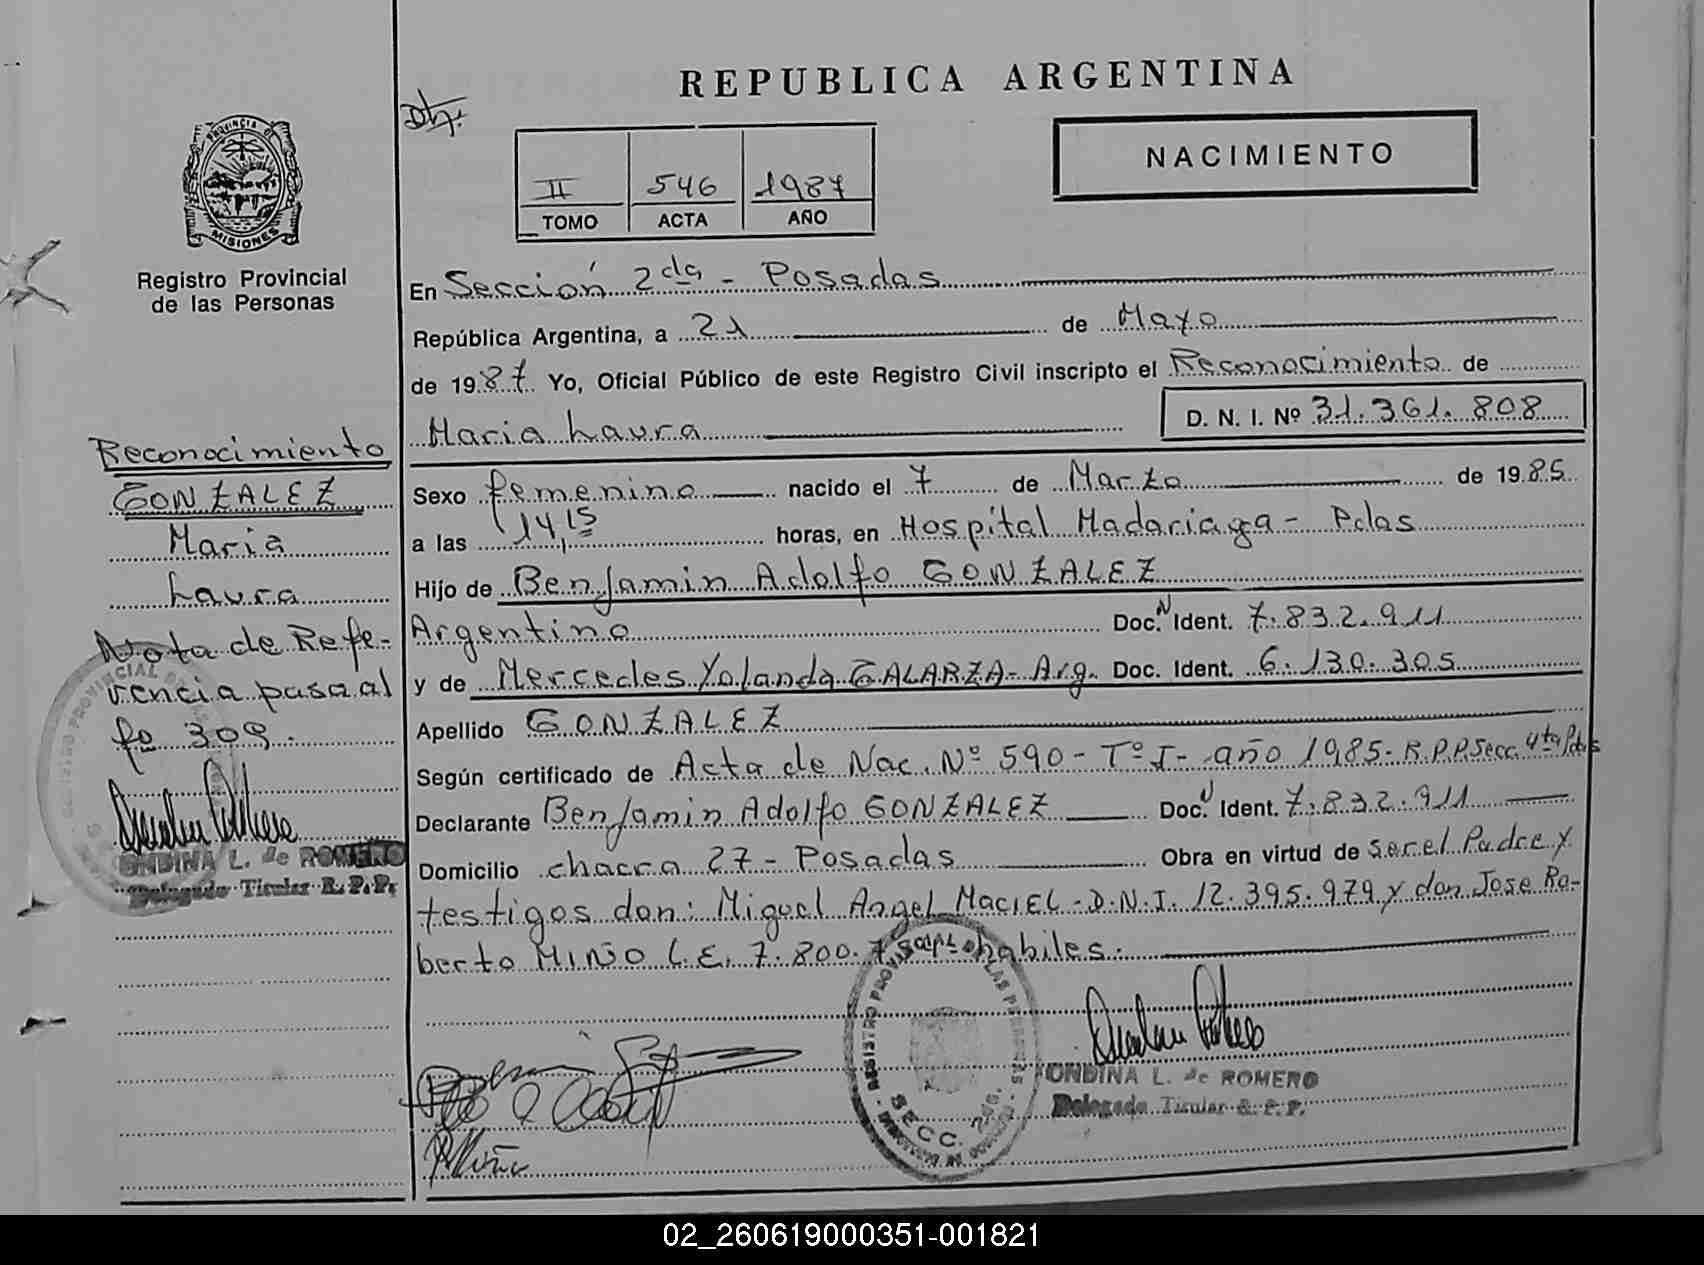 REPUBLICA ARGENTINA
NACIMIENTO
II 546 1987
TOMO ACTA AÑO
PROVINCIA DE
MISIONES
Registro Provincial
de las Personas
En Sección 2da - Posadas
República Argentina, a 21 de Mayo
de 1987 Yo, Oficial Público de este Registro Civil inscripto el Reconocimiento de
Maria Laura D. N. I. Nº 31.361.808
Sexo femenino nacido el 7 de Marzo de 1985
a las 14,15 horas, en Hospital Madariaga - Pdas
Hijo de Benjamin Adolfo GONZALEZ
Argentino Doc. N Ident. 7.832.911
y de Mercedes Yolanda GALARZA - Arg. Doc. Ident. 6.130.305
Apellido GONZALEZ
Según certificado de Acta de Nac. Nº 590 - Tº I - año 1985 - R.P.P. Secc. 4ta Pdas
Declarante Benjamin Adolfo GONZALEZ Doc. Ident. 7.832.911
Domicilio chacra 27 - Posadas Obra en virtud de ser el Padre y
testigos don: Miguel Angel MACIEL - D.N.I. 12.395.979 y don Jose Ro-
berto MIÑO L.E. 7.800.7 habiles.
Reconocimiento
GONZALEZ
Maria
Laura
Nota de Refe-
rencia pasa al
fº 309.
ONDINA L. de ROMERO
Delegada Titular R. P. P.
REGISTRO PROVINCIAL DE LAS PERSONAS
SECC. 2da.
ONDINA L. de ROMERO
Delegada Titular R. P. P.
02_260619000351-001821